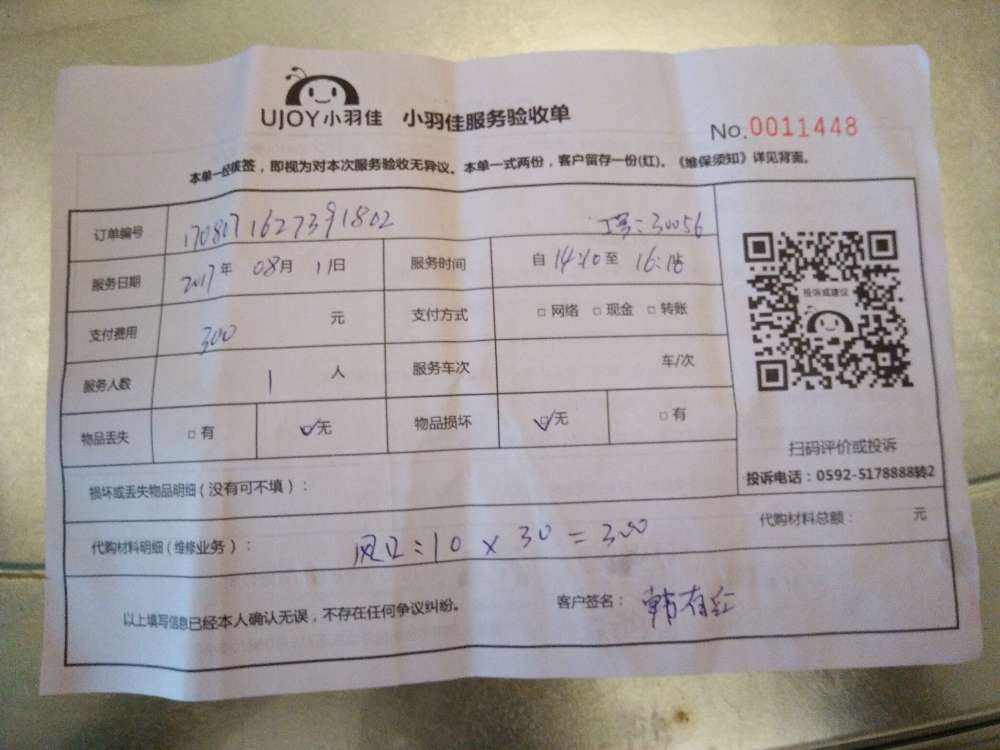 UJOY小羽佳 小羽佳服务验收单
No.0011448
本单一经核签，即视为对本次服务验收无异议。本单一式两份，客户留存一份(红)。《维保须知》详见背面。
订单编号 1708071627391802 工号：30056
服务日期 2017年 08月 11日 服务时间 自 14:10 至 16:18
支付费用 300 元 支付方式 □ 网络 □ 现金 □ 转账
服务人数 1 人 服务车次 车/次
物品丢失 □ 有 ☑无 物品损坏 ☑无 □ 有
投诉或建议
扫码评价或投诉
投诉电话：0592-5178888转2
损坏或丢失物品明细（没有可不填）：
代购材料明细（维修业务）： 风口：10 × 30 = 300
代购材料总额： 元
以上填写信息已经本人确认无误，不存在任何争议纠纷。 客户签名： 韩有红